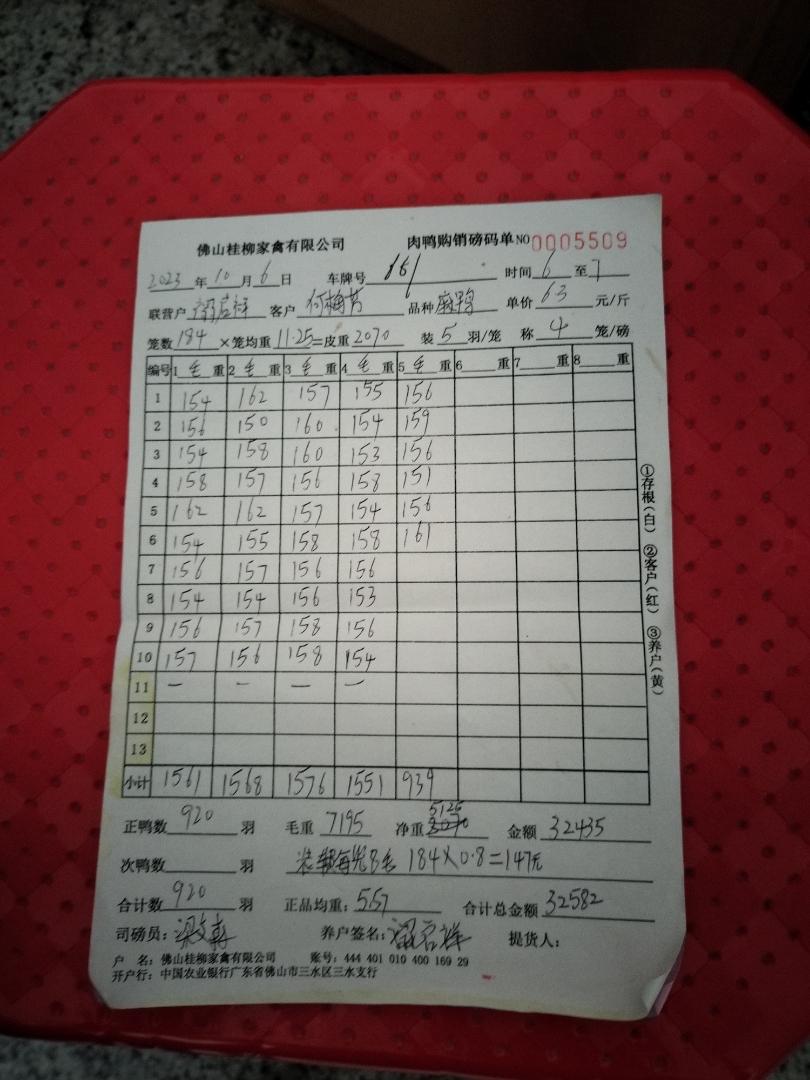 佛山桂柳家禽有限公司 肉鸭购销磅码单 NO 0005509
2023 年 10 月 6 日 车牌号 161 时间 6 至 7
联营户 客户 何梅芳 品种 麻鸭 单价 6.3 元/斤
笼数 184 ×笼均重 11.25 =皮重 2070 装 5 羽/笼 称 4 笼/磅
编号 1 毛 重 2 毛 重 3 毛 重 4 毛 重 5 毛 重 6 重 7 重 8 重
1 154 162 157 155 156
2 156 150 160 154 159
3 154 158 160 153 156
4 158 157 156 158 151
5 162 162 157 154 156
6 154 155 158 158 161
7 156 157 156 156
8 154 154 156 153
9 156 157 158 156
10 157 156 158 154
11 — — — —
12
13
小计 1561 1568 1576 1551 939
正鸭数 920 羽 毛重 7195 净重 5125 金额 32435
次鸭数 羽 184×0.8=147元
合计数 920 羽 正品均重: 5.57 合计总金额 32582
司磅员: 养户签名: 提货人:
户 名: 佛山桂柳家禽有限公司 账号: 444 401 010 400 169 29
开户行: 中国农业银行广东省佛山市三水区三水支行
①存根(白) ②客户(红) ③养户(黄)